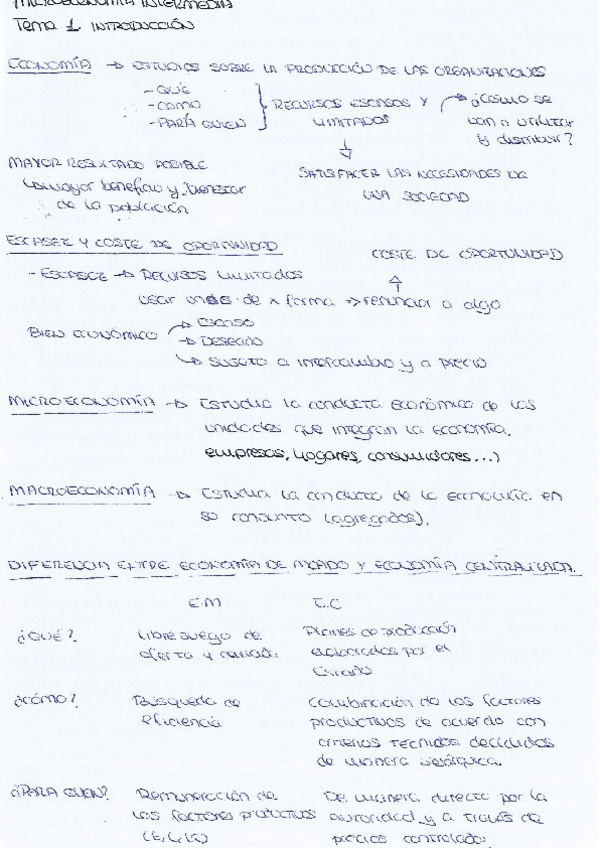 MICROECONOMÍA INTERMEDIA
Tema 1. INTRODUCCIÓN
ECONOMÍA → ESTUDIOS SOBRE LA PRODUCCIÓN DE LAS ORGANIZACIONES
- QUÉ
- CÓMO
- PARA QUIEN
RECURSOS ESCASOS Y
LIMITADOS
¿Cómo se
van a utilizar
y distribuir?
MAYOR RESULTADO POSIBLE
↳ mayor beneficio y bienestar
de la población
SATISFACER LAS NECESIDADES DE
UNA SOCIEDAD
ESCASEZ Y COSTE DE OPORTUNIDAD
COSTE DE OPORTUNIDAD
- ESCASEZ → RECURSOS LIMITADOS
usar de x forma → renunciar a algo
BIEN ECONÓMICO
→ ESCASO
→ DESEADO
→ SUJETO A INTERCAMBIO y a PRECIO
MICROECONOMÍA → ESTUDIA la conducta económica de las
unidades que integran la economía.
empresas, hogares, consumidores...)
MACROECONOMÍA → ESTUDIA la conducta de la economía en
su conjunto (agregados).
DIFERENCIA ENTRE ECONOMÍA DE MCADO Y ECONOMÍA CENTRALIZADA.
E.M E.C
¿QUÉ? Libre juego de
oferta y
Planes de producción
elaborados por el
Estado
¿CÓMO? Búsqueda de
eficiencia
Combinación de los factores
productivos de acuerdo con
criterios técnicos decididos
de manera jerárquica.
¿PARA QUIEN? Remuneración de
los factores productivos
De manera directa por la
autoridad y a través de
precios controlados